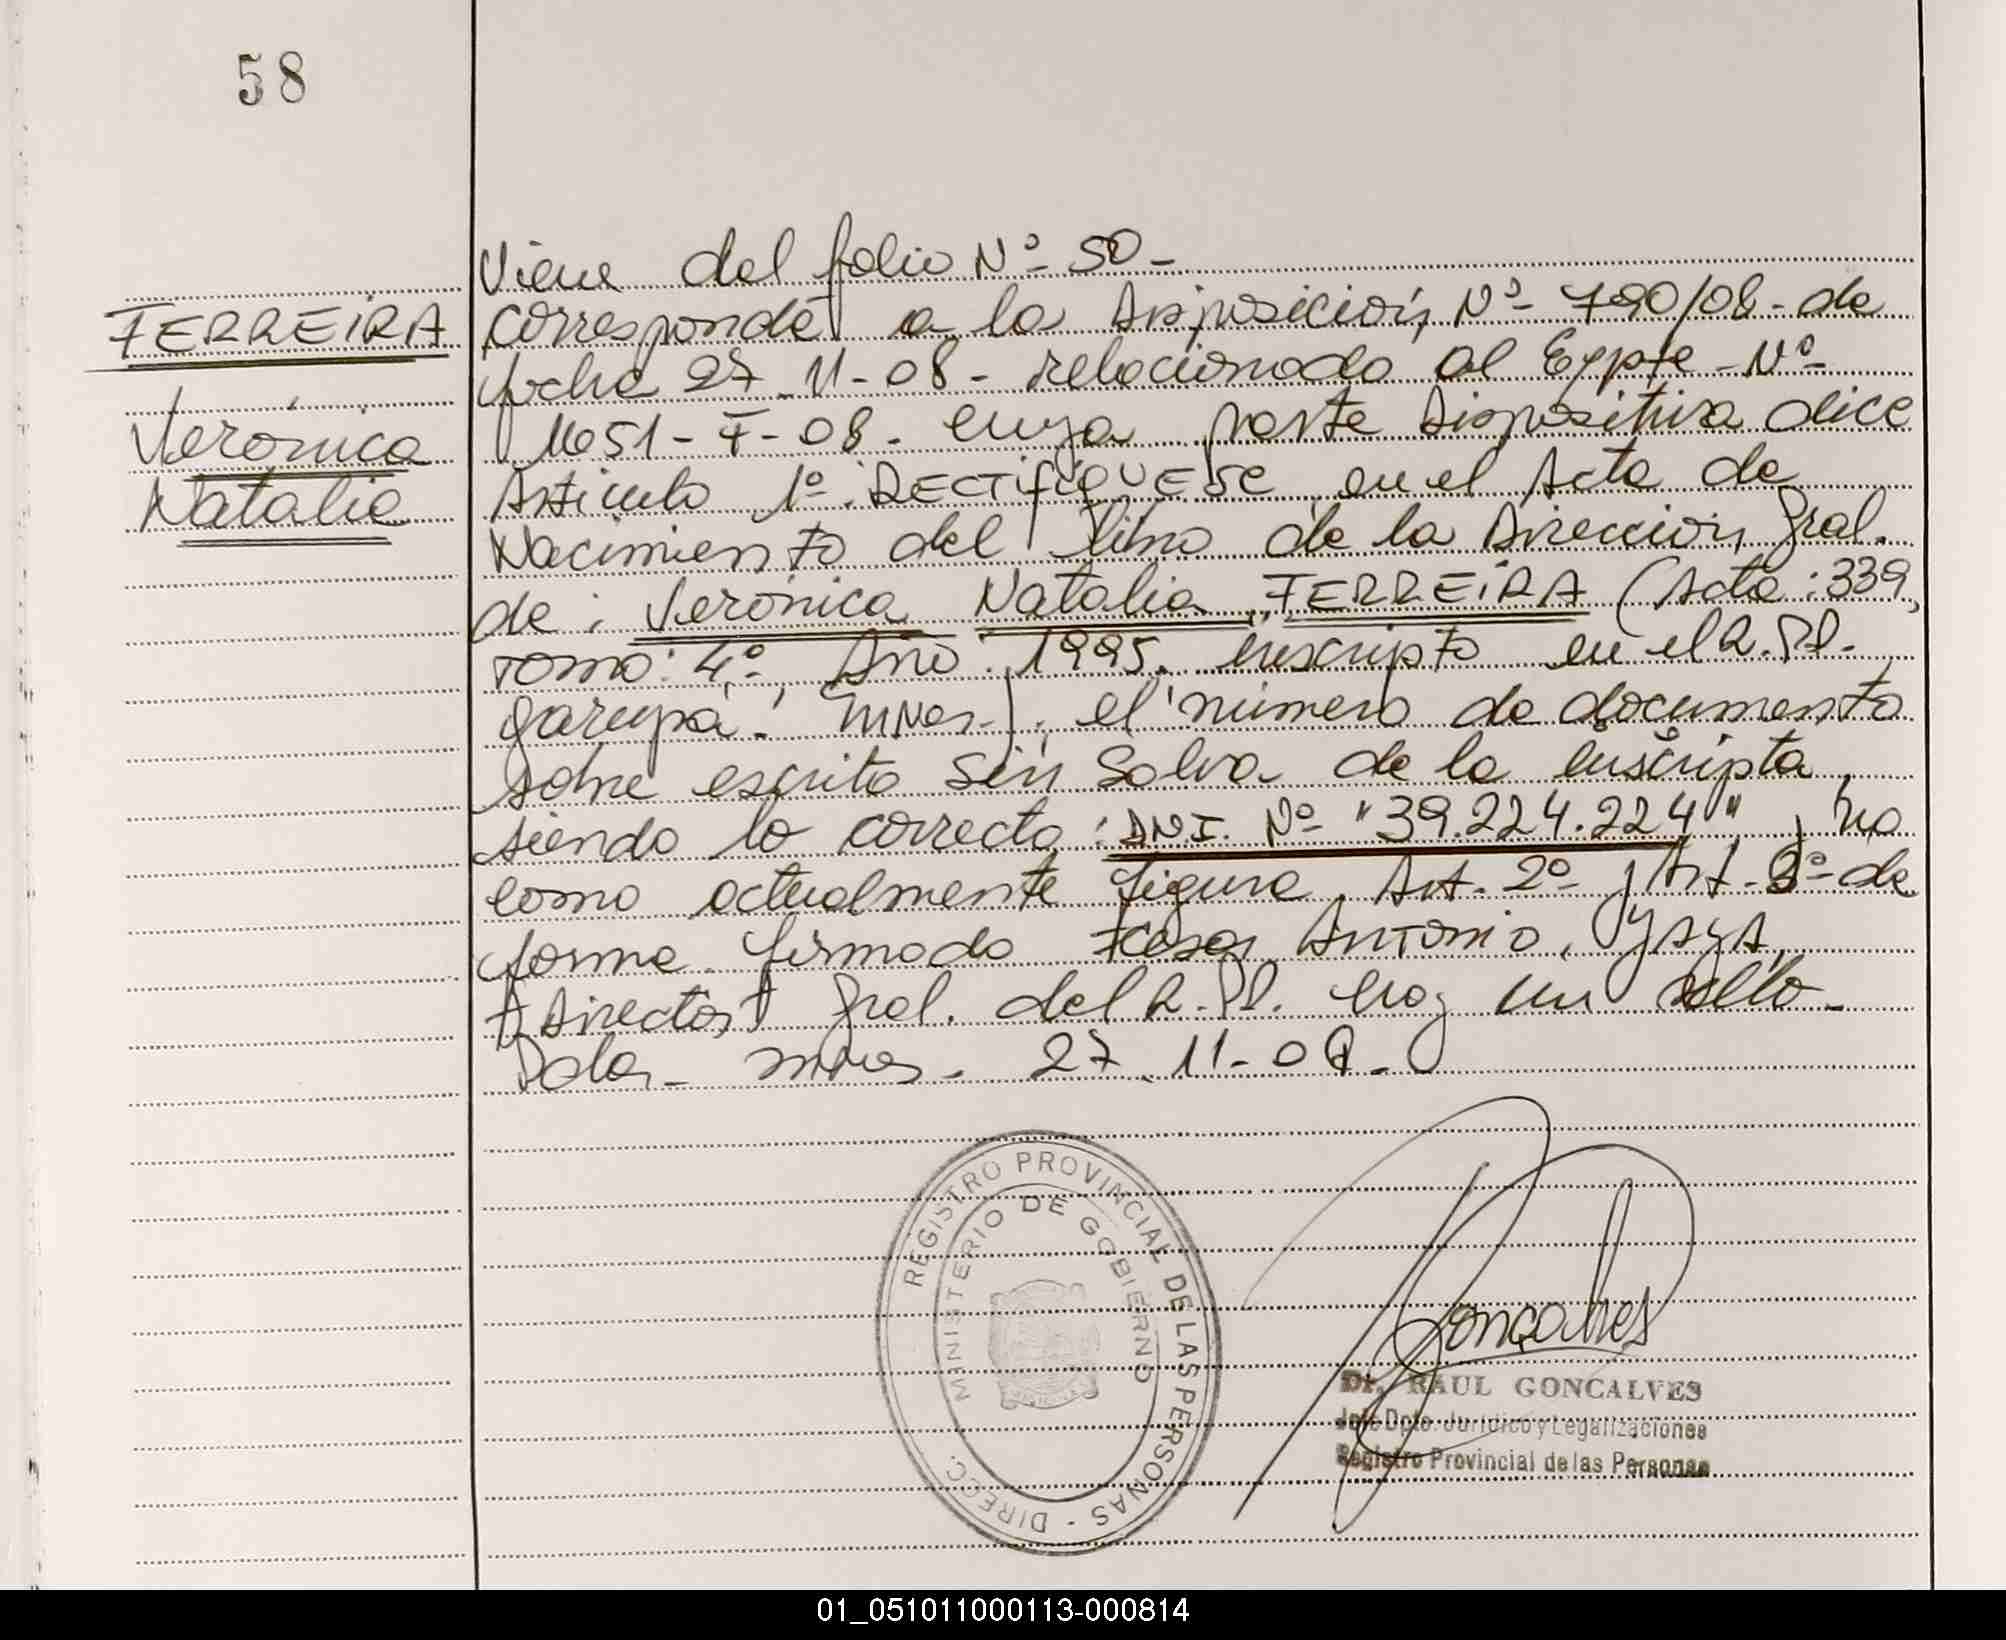 58
Viene del folio Nº 50-
FERREIRA
Verónica
Natalia
corresponde a la Disposición Nº 790/08- de
fecha 27-11-08- relacionado al Expte- Nº
1651-F-08- cuya parte Dispositiva dice
Artículo 1º: RECTIFIQUESE en el Acta de
Nacimiento del libro de la Dirección Gral.
de: Verónica Natalia FERREIRA (Acta: 339,
Tomo: 4º, Año: 1995, inscripto en el R.P.
Garupá - Mnes-), el número de documento
sobre escrito sin salvar de la inscripta,
siendo lo correcto: D.N.I. Nº "39.224.224", no
como actualmente figura. Art. 2º y Art. 3º- de
forma firmado Antonio
Director Gral. del R.P. hay un sello-
Pdas- Mnes. 27-11-08.
REGISTRO PROVINCIAL DE LAS PERSONAS - DIRECC.
MINISTERIO DE GOBIERNO
Goncalves
Dr. RAUL GONCALVES
Jefe Dpto. Jurídico y Legalizaciones
Registro Provincial de las Personas
01_051011000113-000814